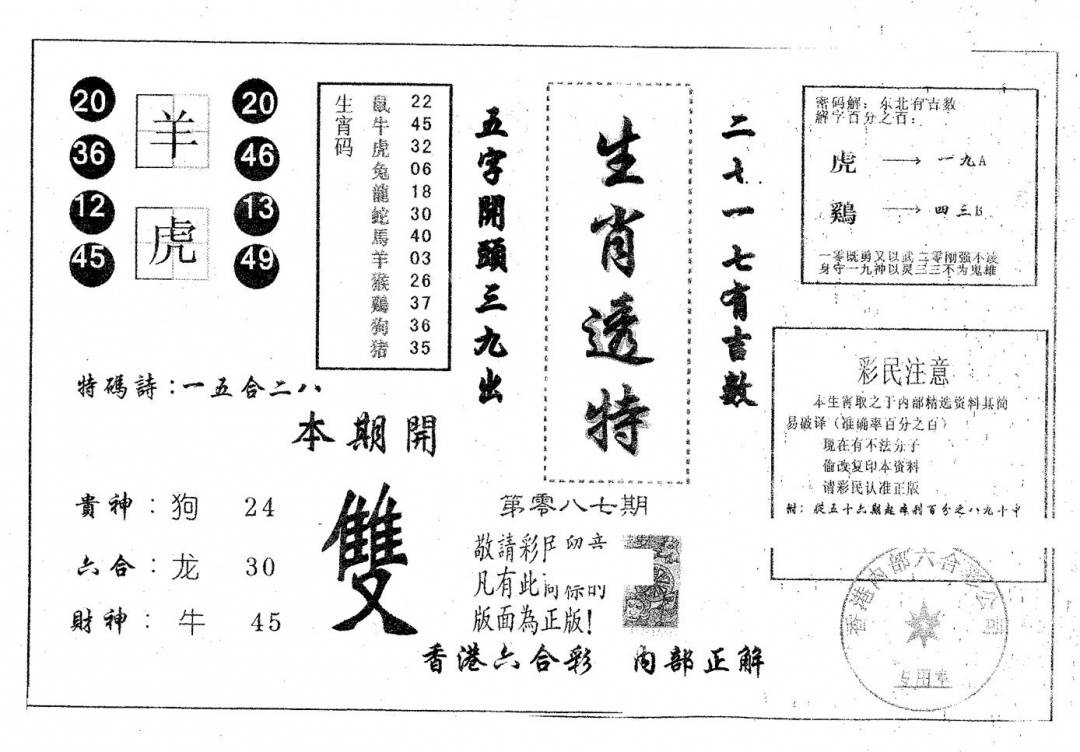 20 羊 20
36 46
12 虎 13
45 49
特碼詩:一五合二八
生宵码
鼠 22
牛 45
虎 32
兔 06
龍 18
蛇 30
馬 40
羊 03
猴 26
鷄 37
狗 36
猪 35
五字開頭三九出
生肖透特
二七一七有吉數
密码解:东北有吉数
解字百分之百:
虎 → 一九A
鷄 → 四三B
一零既勇又以武二零刚强不凌
身守一九神以灵三三不为鬼雄
彩民注意
本生宵取之于内部精选资料其简
易破译(准确率百分之百)
现在有不法分子
偷改复印本资料
请彩民认准正版
附:從五十六期起
本期開
雙
貴神:狗 24
六合:龙 30
財神:牛 45
第零八七期
敬請彩民
凡有此 的
版面為正版!
香港六合彩 内部正解
香港內部六合 公司
专用章